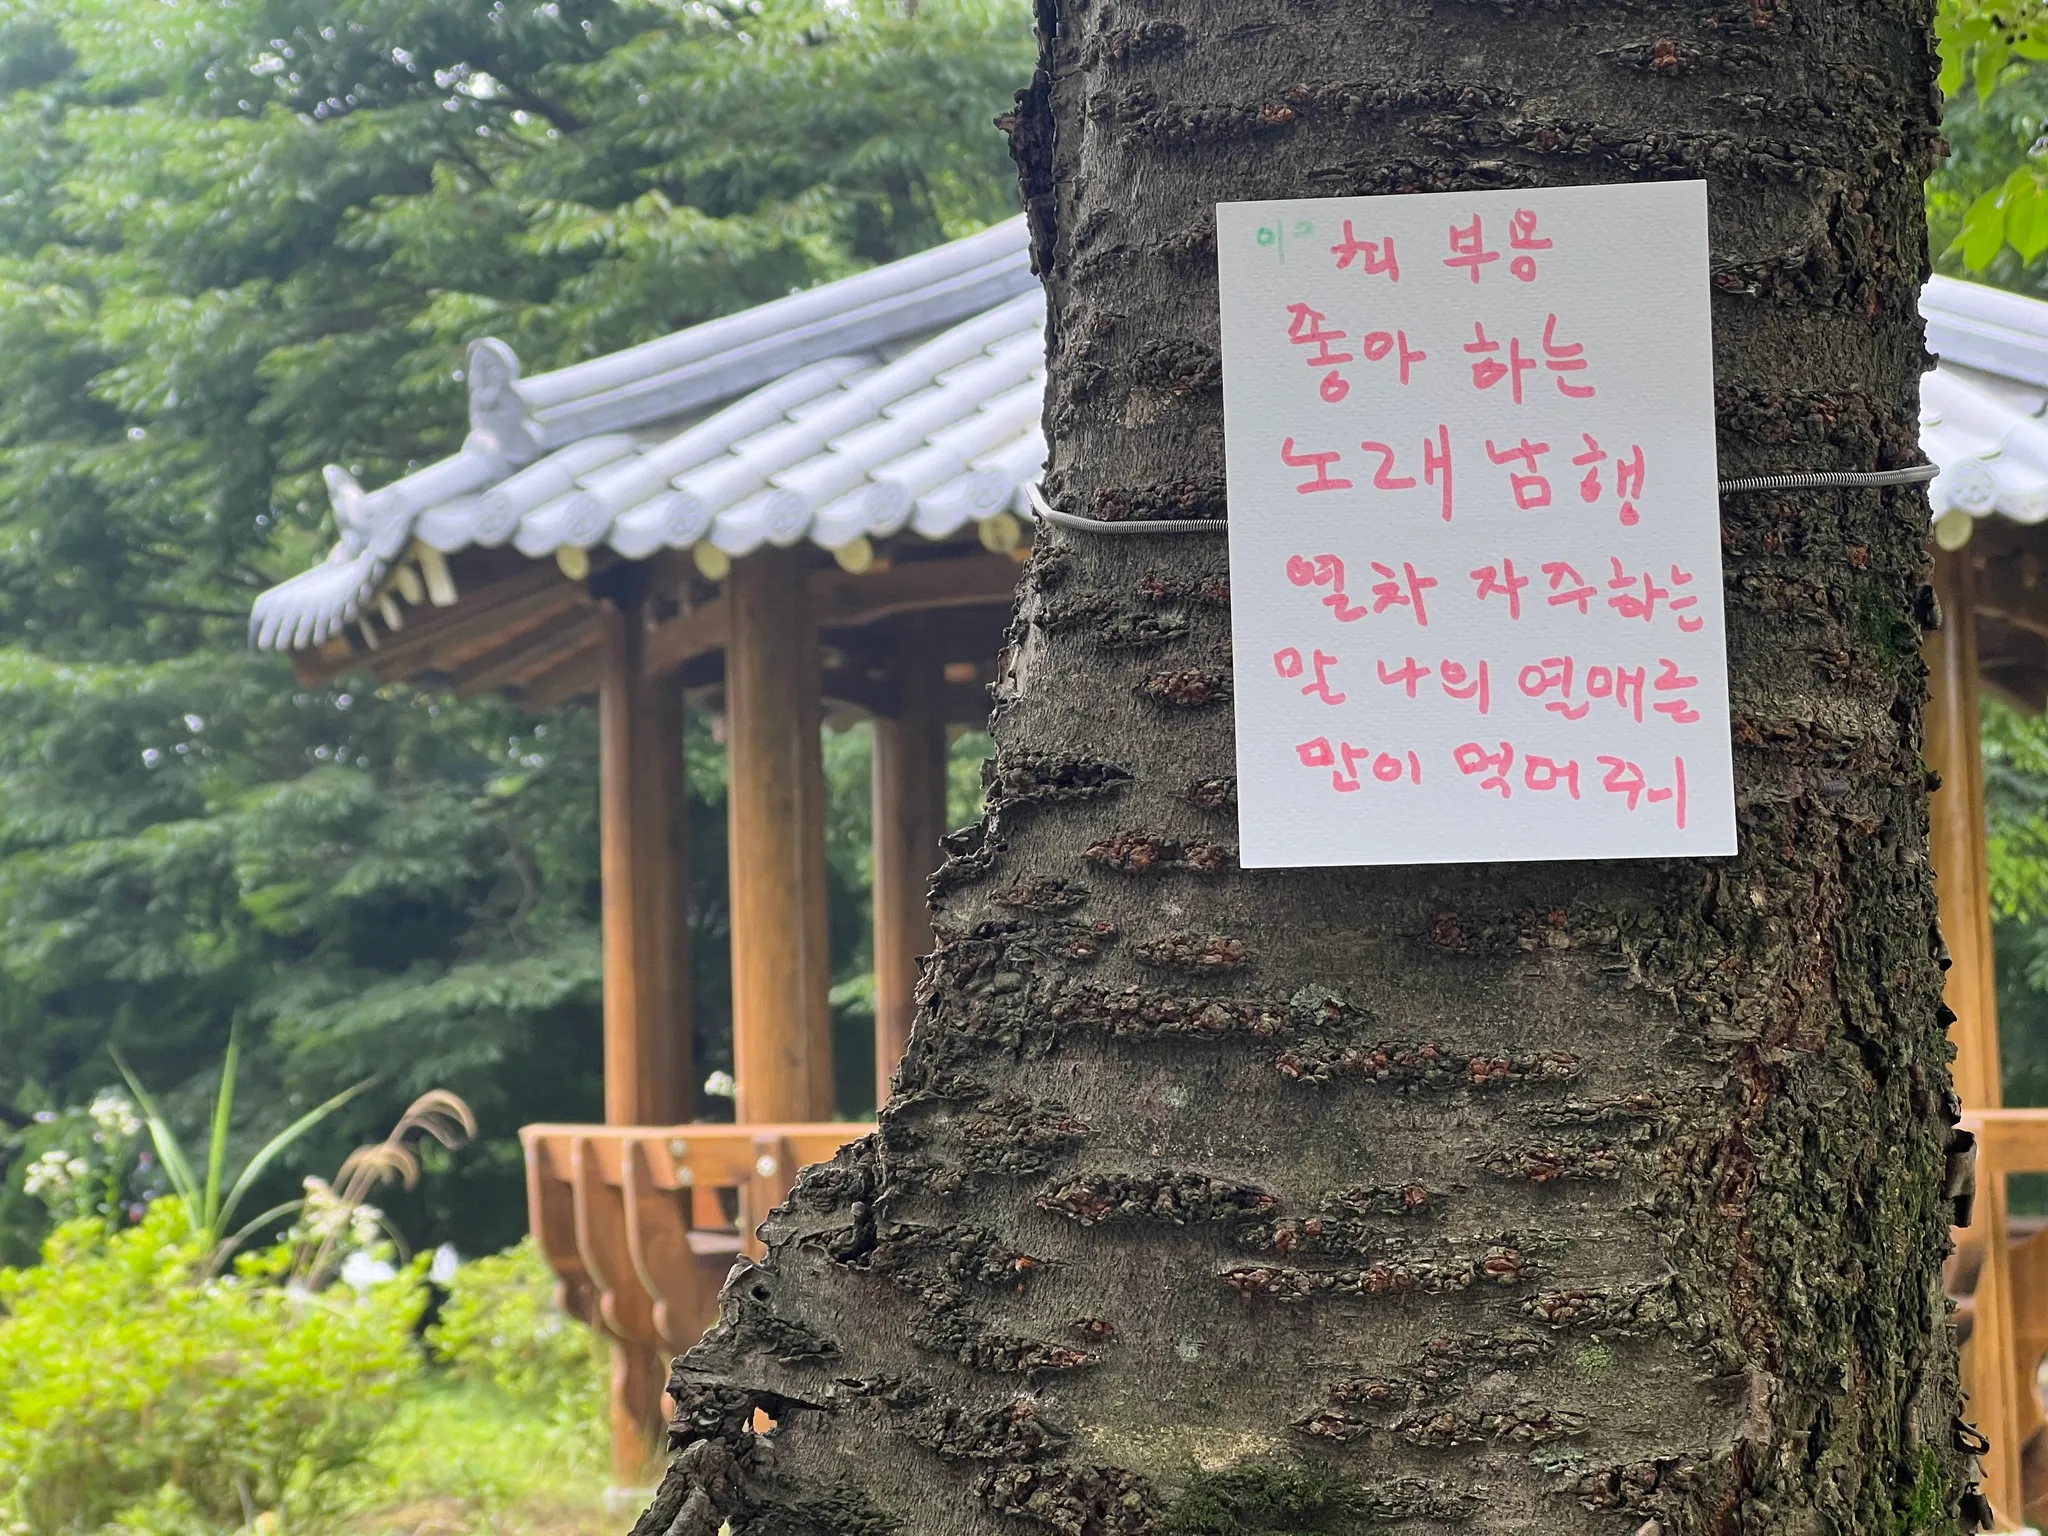 이ㅁ 최 부용
좋아 하는
노래 남행
열차 자주하는
말 나의 열매를
만이 먹머 줘